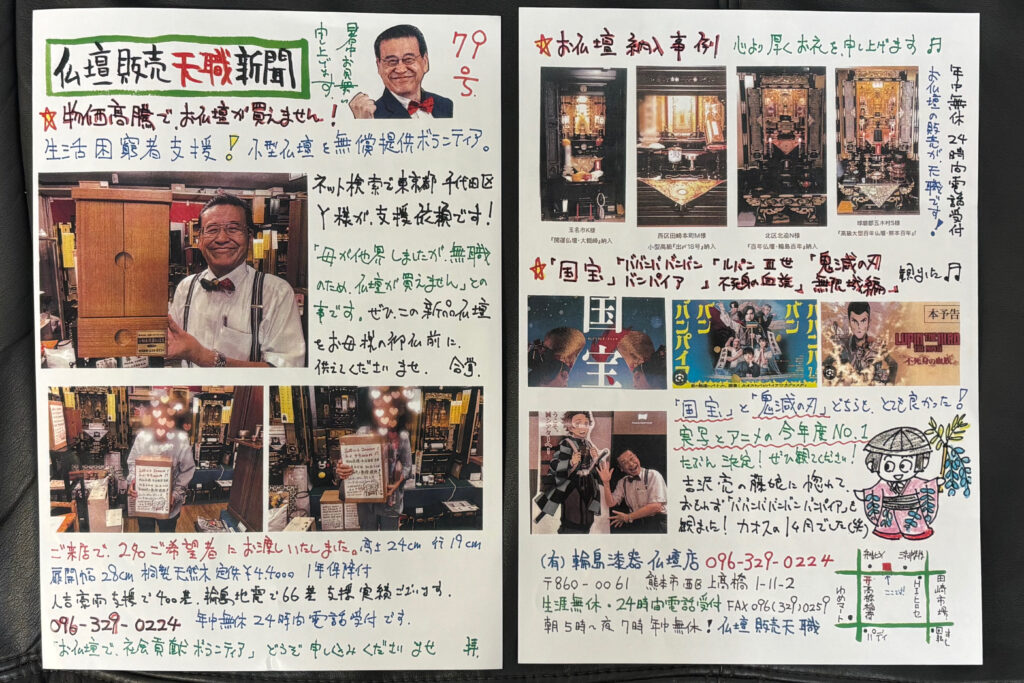 仏壇販売天職新聞
暑中お見舞い
申し上げます
79号
☆物価高騰で、お仏壇が買えません!
生活困窮者支援!小型仏壇を無償提供ボランティア。
ネット検索で東京都千代田区
Y様が支援依頼です!
「母が他界しましたが、無職
のため、仏壇が買えません」との
事です。ぜひ、この新品仏壇
をお母様の御仏前に、
供えてくださいませ. 合掌.
ご来店で、2名ご希望者にお渡しいたしました。高さ24cm 行19cm
扉開幅28cm 桐製天然木 定価¥44000 1年保障付
人吉豪雨支援で400基、輪島地震で66基支援実績ございます。
096-329-0224 年中無休24時間電話受付です.
「お仏壇で、社会貢献ボランティア」どうぞ申し込みくださいませ 拝.
☆お仏壇納入事例 心より厚くお礼を申し上げます♫
年中無休 24時間電話受付
お仏壇の販売が天職です!
玉名市K様
『開運仏壇・大観峰』納入
西区田崎本町M様
小型高級『出が18号』納入
北区北迫N様
『百年仏壇・輪島百年』納入
球磨郡五木村S様
『高級大型百年仏壇・熊本百年』
☆「国宝」「ババンババンバンバンパイア」「ルパンⅢ世 不死身の血族」「鬼滅の刃 無限城編」観ました♫
国宝
ババンババンバンバンパイア
本予告
LUPIN THE IIIRD
不死身の血族
「国宝」と「鬼滅の刃」どちらも、とても良かった!
実写とアニメの今年度NO.1
たぶん決定!ぜひ観てください!
吉沢亮の藤娘に惚れて、
おもわず「ババンババンバンバンパイア」も
観ました!カオスの1ヶ月でした(笑)
(有)輪島漆器仏壇店 096-329-0224
〒860-0061 熊本市西区上高橋1-11-2
生涯無休・24時間電話受付 FAX096(329)0259
朝5時~夜7時 年中無休!仏壇販売天職
ここです!
高橋稲荷
ゆめマート
田崎市場